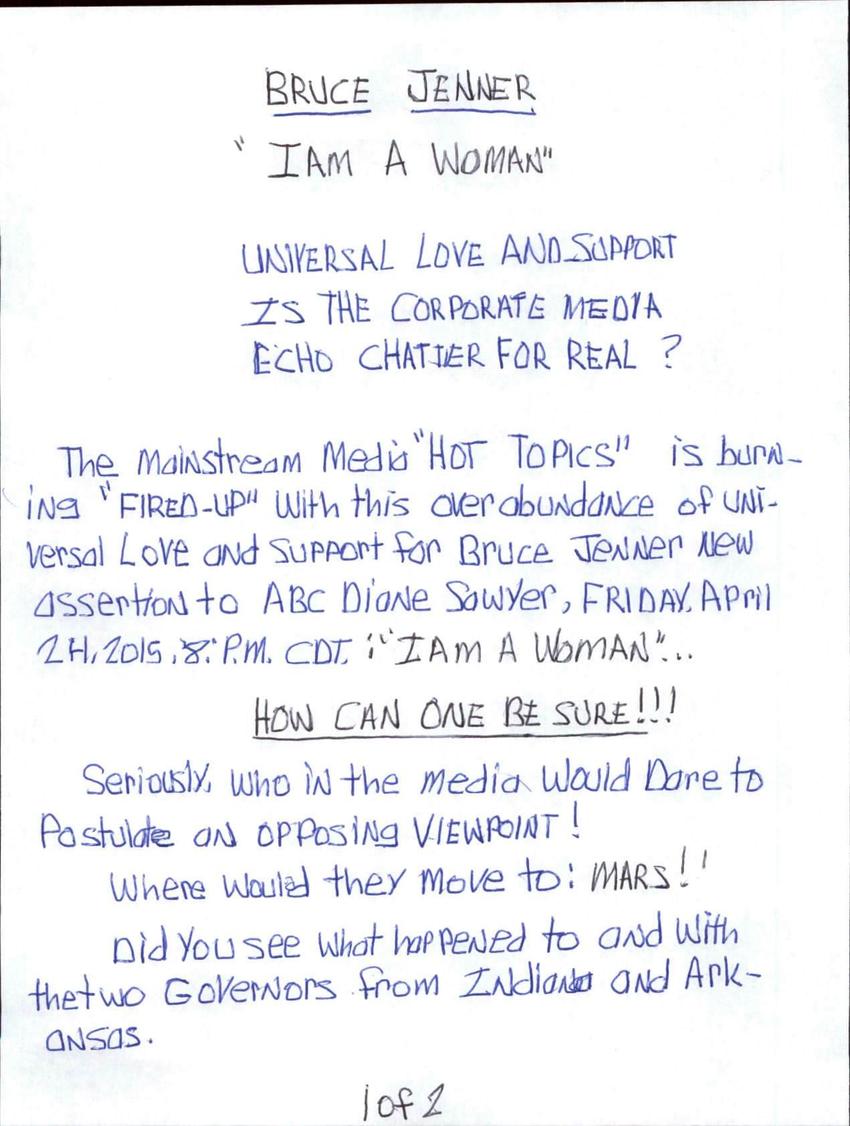 BRUCE JENNER
"I AM A WOMAN"
UNIVERSAL LOVE AND SUPPORT
IS THE CORPORATE MEDIA
ECHO CHATTER FOR REAL ?
The Mainstream Media "HOT TOPICS" is burn-
ing "FIRED-UP" With this overabundance of uni-
versal Love and support for Bruce Jenner New
assertion to ABC Diane Sawyer, FRIDAY, April
24, 2015, 8: P.M. CDT, : "I AM A WOMAN"...
HOW CAN ONE BE SURE!!!
Seriously, who in the media Would Dare to
Postulate an opposing VIEWPOINT!
Where Would they move to: MARS!!
Did You see what happened to and with
the two Governors from Indiana and Ark-
ansas.
1 of 2